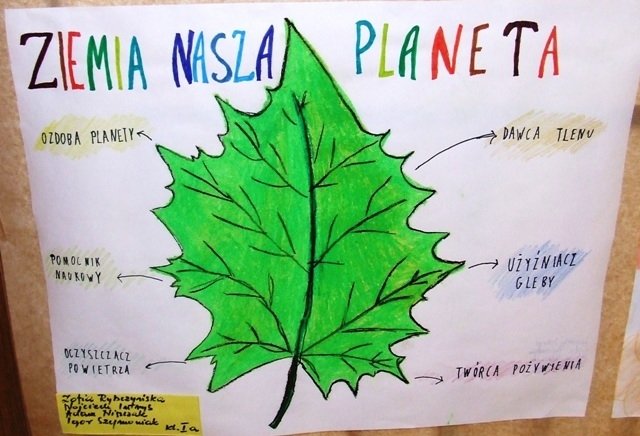 ZIEMIA NASZA PLANETA
OZDOBA PLANETY
DAWCA TLENU
POMOCNIK
NAUKOWY
UŻYŹNIACZ
GLEBY
OCZYSZCZACZ
POWIETRZA
TWÓRCA POŻYWIENIA
Zofia Rybczyńska
Wojciech
Adam
Igor Szymoniak kl. Ia